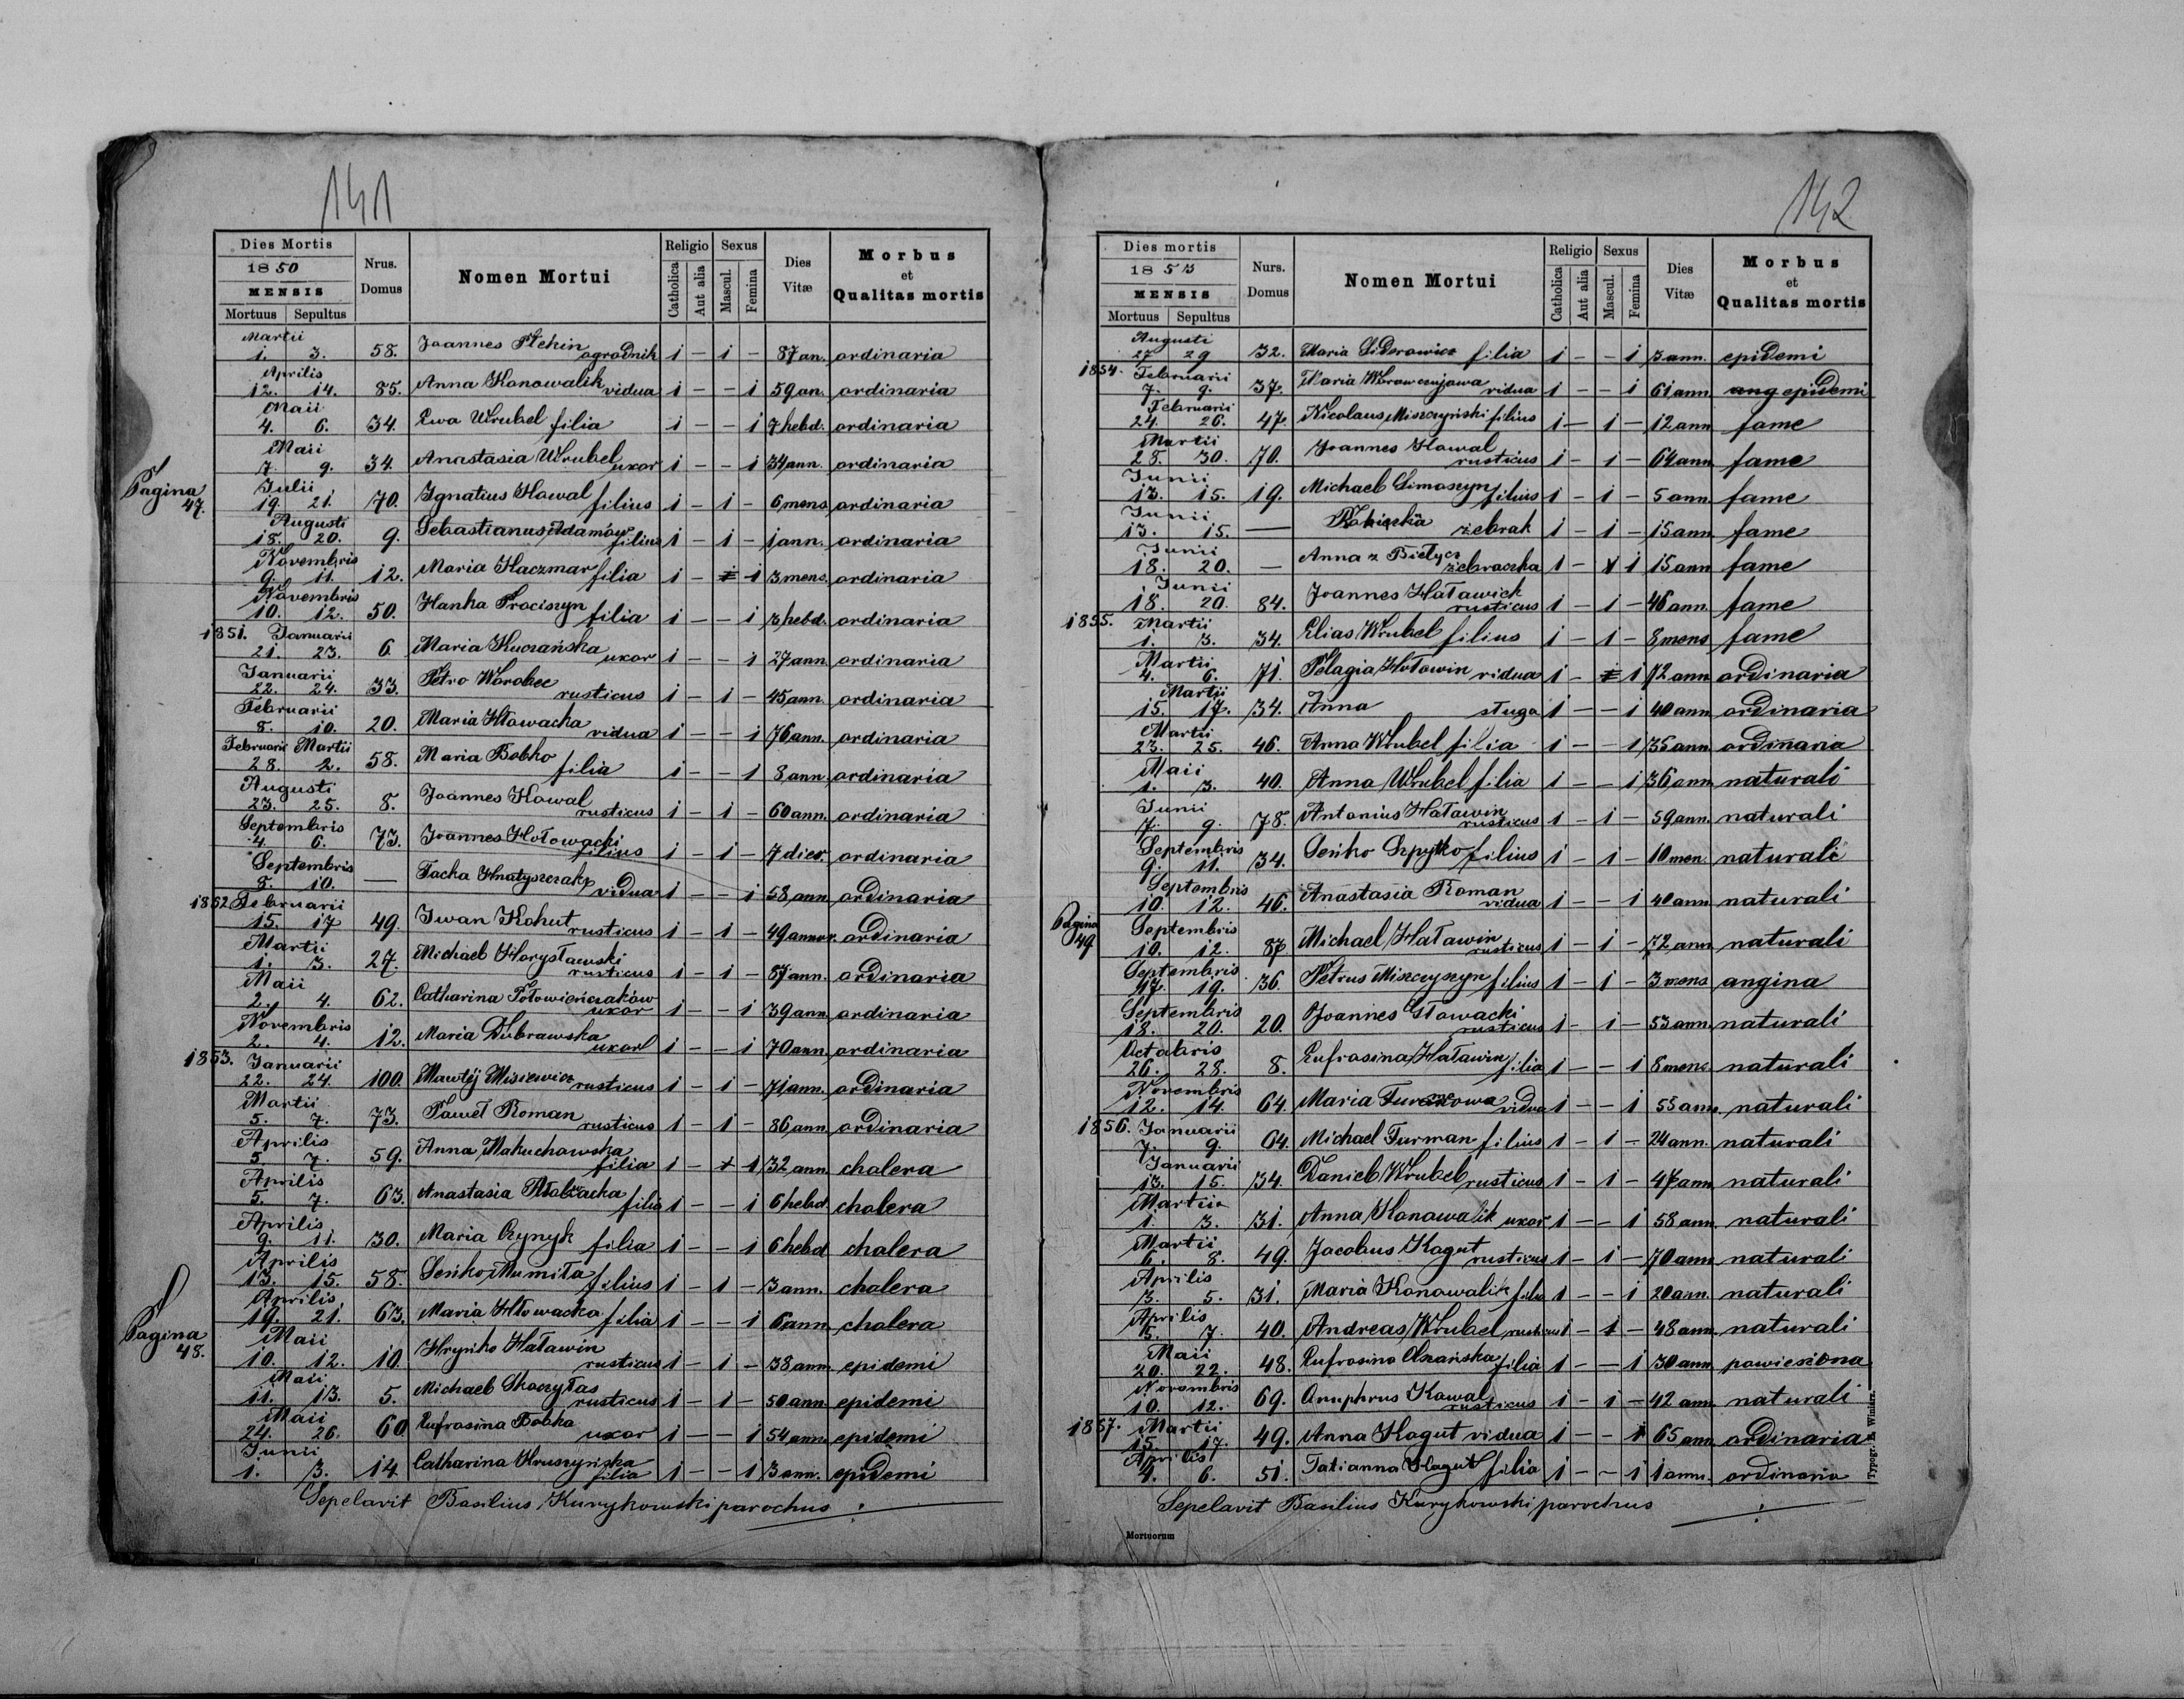 141
Dies Mortis
1850
MENSIS
Mortuus Sepultus
Nrus. Domus
Nomen Mortui
Religio
Catholica
Aut alia
Sexus
Mascul.
Femina
Dies Vitæ
Morbus
et
Qualitas mortis
Martii
1. 3. 58. Joannes ogrodnik 1 - 1 - 87 an. ordinaria
Aprilis
12. 14. 85. Anna Konowalik vidua 1 - - 1 59 an. ordinaria
Maii
4. 6. 34. Ewa Wrubel filia 1 - - 1 7 hebd. ordinaria
Maii
7. 9. 34. Anastasia Wrubel uxor 1 - - 1 34 ann. ordinaria
Pagina 47.
Julii
19. 21. 70. Ignatius Kowal filius 1 - 1 - 6 mens ordinaria
Augusti
18. 20. 9. Sebastianus Adamów filius 1 - 1 - 1 ann. ordinaria
Novembris
9. 11. 12. Maria Kaczmar filia 1 - 1 3 mens. ordinaria
Novembris
10. 12. 50. Hanka Prociszyn filia 1 - - 1 3 hebd. ordinaria
1851. Januarii
21. 23. 6. Maria Kuczańska uxor 1 - - 1 27 ann. ordinaria
Januarii
22. 24. 33. Petro Worobec rusticus 1 - 1 - 45 ann. ordinaria
Februarii
8. 10. 20. Maria Hłowacka vidua 1 - - 1 76 ann. ordinaria
Februarii Martii
28. 2. 58. Maria Bobko filia 1 - - 1 8 ann. ordinaria
Augusti
23. 25. 8. Joannes Kowal rusticus 1 - 1 - 60 ann. ordinaria
Septembris
4. 6. 73. Joannes Hołowacki filius 1 - 1 - 7 dies. ordinaria
Septembris
8. 10. — Tacka vidua 1 - - 1 58 ann. ordinaria
1852 Februarii
15. 17 49. Iwan Kohut rusticus 1 - 1 - 49 annor. ordinaria
Martii
1. 3. 27. Michael Horysławski rusticus 1 - 1 - 87 ann. ordinaria
Maii
2. 4. 62. Catharina uxor 1 - - 1 39 ann. ordinaria
Novembris
2. 4. 12. Maria Dubrawska uxor 1 - - 1 70 ann. ordinaria
1853. Januarii
22. 24. 100. Misiewicz rusticus 1 - 1 - 71 ann. ordinaria
Martii
5. 7. 73. Paweł Roman rusticus 1 - 1 - 86 ann. ordinaria
Aprilis
5. 7. 59. Anna Makuchowska filia 1 - 1 32 ann. cholera
Aprilis
5. 7. 63. Anastasia filia 1 - - 1 6 hebd. cholera
Aprilis
9. 11. 30. Maria Czynyk filia 1 - - 1 6 hebd cholera
Aprilis
13. 15. 58. Seńko Mumiła filius 1 - 1 - 3 ann. cholera
Aprilis
19. 21. 63. Maria Hłowacka filia 1 - - 1 6 ann. cholera
Pagina 48.
Maii
10. 12. 10. Hryńko Hatawin rusticus 1 - 1 - 38 ann. epidemi
Maii
11. 13. 5. Michael Skoczylas rusticus 1 - 1 - 50 ann. epidemi
Maii
24. 26. 60. Eufrosina Bobka uxor 1 - - 1 54 ann. epidemi
Junii
1. 3. 14. Catharina Hruszyńska filia 1 - - 1 3 ann. epidemi
Sepelavit Basilius Kurykowski parochus
142
Dies mortis
1853
MENSIS
Mortuus Sepultus
Nurs. Domus
Nomen Mortui
Religio
Catholica
Aut alia
Sexus
Mascul.
Femina
Dies Vitæ
Morbus
et
Qualitas mortis
Augusti
27 29 32. Maria Siderowicz filia 1 - - 1 3 ann. epidemi
1854. Februarii
7. 9. 37. Maria vidua 1 - - 1 61 ann ang epidemi
Februarii
24. 26. 47. Nicolaus Miszczyński filius 1 - 1 - 12 ann fame
Martii
28. 30. 70. Joannes Kowal rusticus 1 - 1 - 64 ann. fame
Junii
13. 15. 19. Michael Simoszyn filius 1 - 1 - 5 ann. fame
Junii
13. 15. — żebrak 1 - 1 - 15 ann. fame
Junii
18. 20. — Anna z żebraczka 1 - 1 15 ann fame
Junii
18. 20. 84. Joannes rusticus 1 - 1 - 46 ann. fame
1855. Martii
1. 3. 34. Elias Wrubel filius 1 - 1 - 8 mens fame
Martii
4. 6. 71. Pelagia Hołowin vidua 1 - 1 72 ann ordinaria
Martii
15. 17. 34. Anna sługa 1 - - 1 40 ann ordinaria
Martii
23. 25. 46. Anna Wrubel filia 1 - - 1 35 ann. ordinaria
Maii
1. 3. 40. Anna Wrubel filia 1 - - 1 36 ann. naturali
Junii
7. 9. 78. Antonius Hatawin rusticus 1 - 1 - 59 ann. naturali
Septembris
9. 11. 34. Seńko Szpytko filius 1 - 1 - 10 men. naturali
Septembris
10. 12. 46. Anastasia Roman vidua 1 - - 1 40 ann naturali
Pagina 49
Septembris
10. 12. 87 Michael Hatawin rusticus 1 - 1 - 72 ann. naturali
Septembris
17. 19. 36. Petrus Miszczyszyn filius 1 - 1 - 3 mens angina
Septembris
18. 20. 20. Joannes Głowacki rusticus 1 - 1 - 53 ann. naturali
Octobris
26. 28. 8. Eufrosina Hatawin filia 1 - - 1 8 mens. naturali
Novembris
12. 14. 64. Maria vidua 1 - - 1 55 ann. naturali
1856. Januarii
7. 9. 64. Michael Furman filius 1 - 1 - 24 ann. naturali
Januarii
13. 15. 34. Daniel Wrubel rusticus 1 - 1 - 47 ann naturali
Martii
1. 3. 31. Anna Konowalik uxor 1 - - 1 58 ann. naturali
Martii
6. 8. 49. Jacobus Kagut rusticus 1 - 1 - 70 ann. naturali
Aprilis
3. 5. 31. Maria Konowalik filia 1 - - 1 20 ann. naturali
Aprilis
5. 7. 40. Andreas Wrubel rusticus 1 - 1 - 48 ann. naturali
Maii
20. 22. 48. Eufrosina filia 1 - - 1 30 ann. powiesiona
Novembris
10. 12. 69. Onuphrus Kowal rusticus 1 - 1 - 42 ann. naturali
1857. Martii
15. 17. 49. Anna Kogut vidua 1 - - 1 65 ann ordinaria
Aprilis
4. 6. 51. Tatianna Kagut filia 1 - - 1 1 ann. ordinaria
Sepelavit Basilius Kurykowski parochus
Mortuorum
Typogr. E. Winiarz.